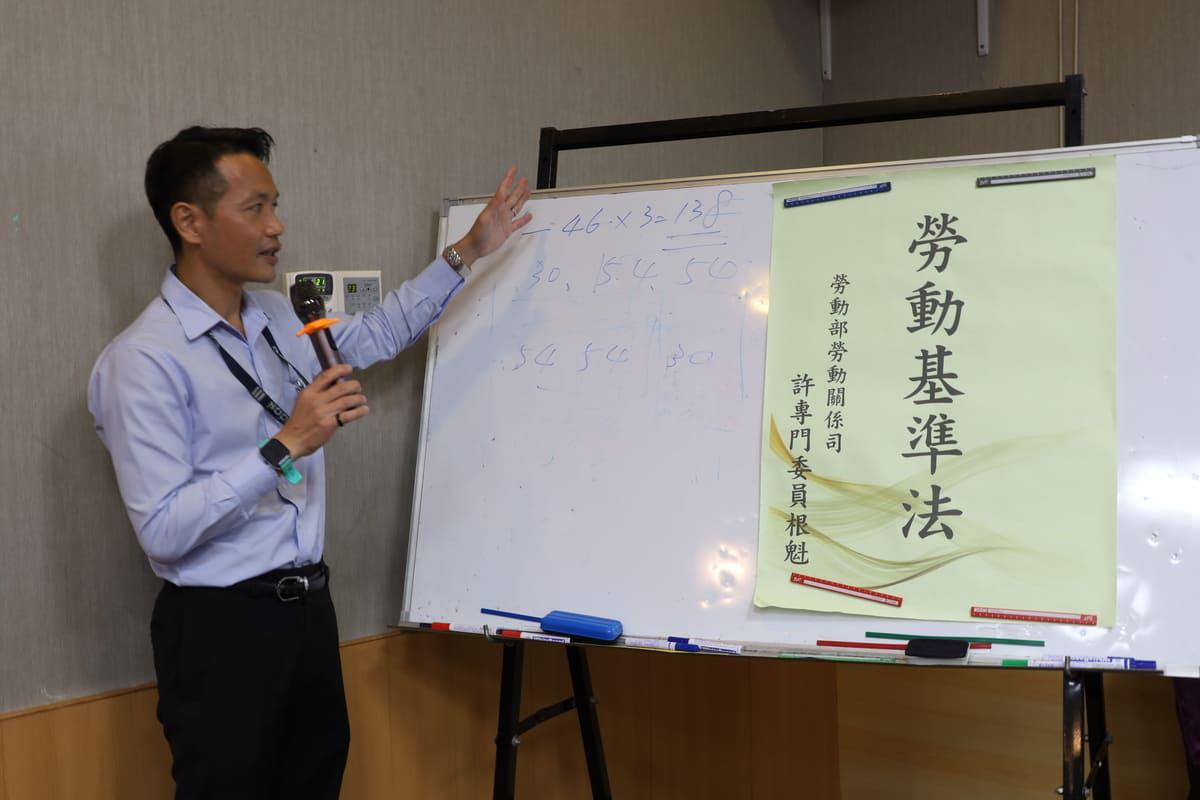 一 46×3=138
30、54、54
54 54 30
勞動基準法
勞動部勞動關係司
許專門委員根魁